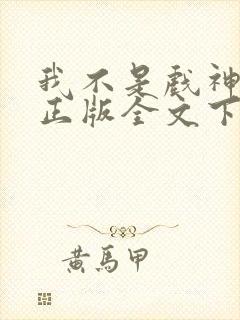 我不是戲神
正版全文下
黄馬甲